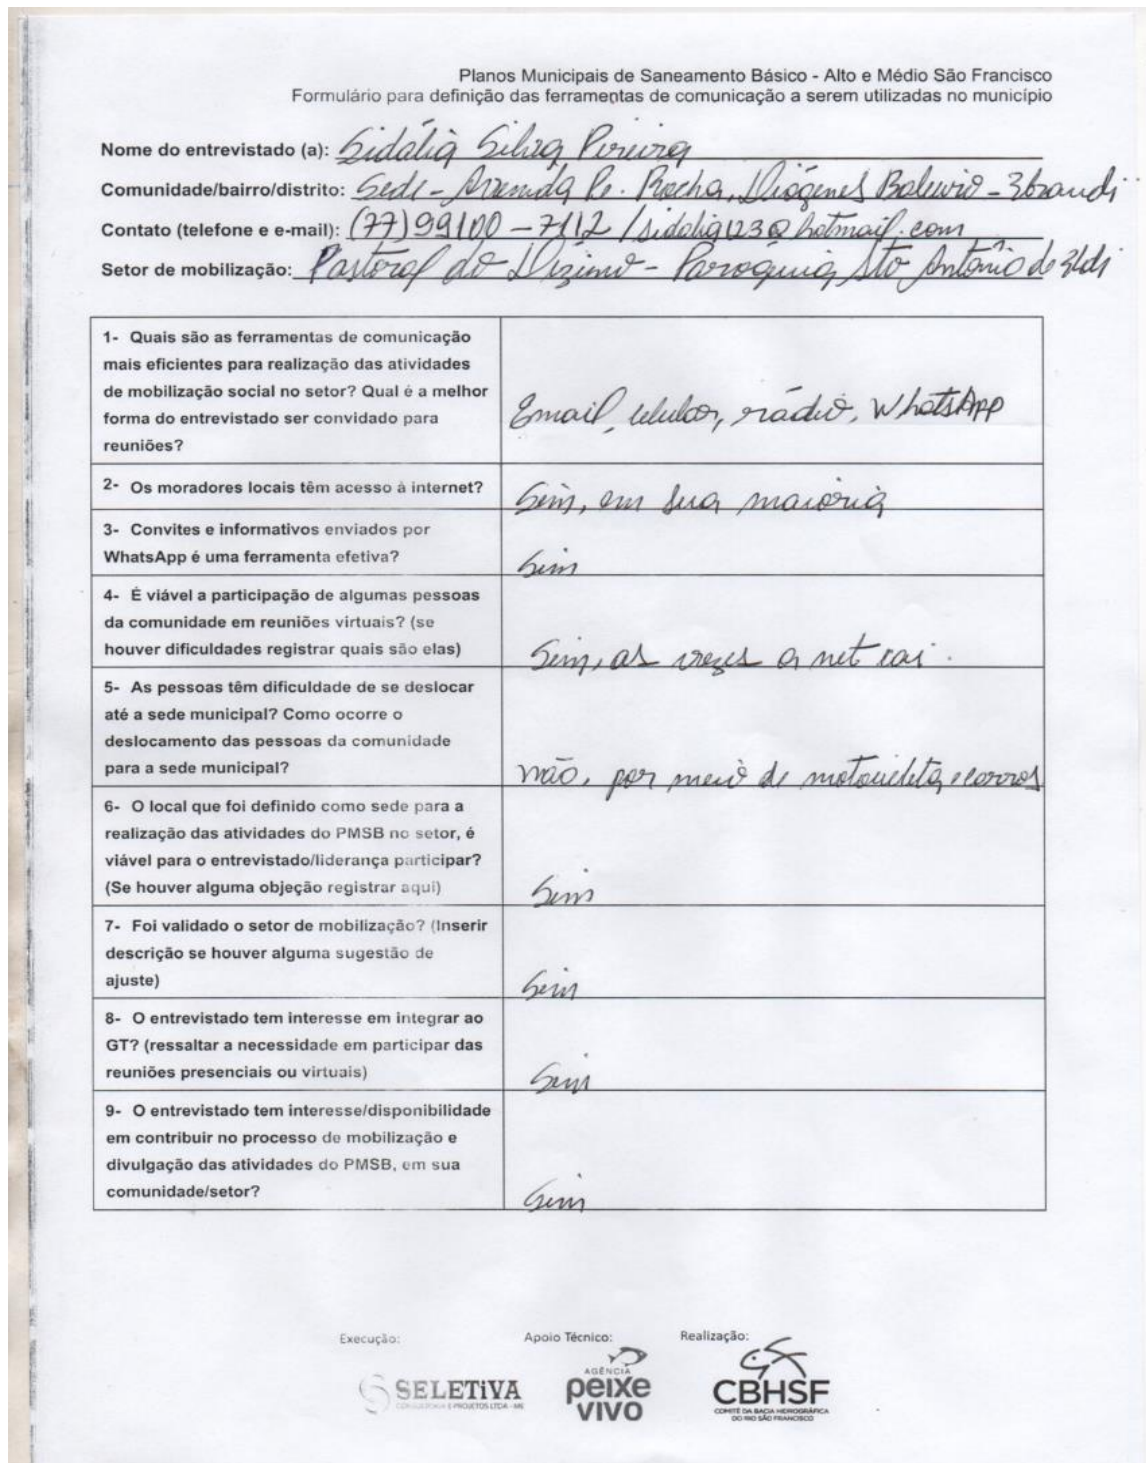 Planos Municipais de Saneamento Básico - Alto e Médio São Francisco
Formulário para definição das ferramentas de comunicação a serem utilizadas no município
Nome do entrevistado (a): Sidália Silva Pereira
Comunidade/bairro/distrito: Sede - Avenida Pe. Rocha, Diógenes Baleeiro -
Contato (telefone e e-mail): (77)99100-7112 / sidalia123@hotmail.com
Setor de mobilização: Pastoral do Dízimo - Paróquia Sto Antônio de
1- Quais são as ferramentas de comunicação
mais eficientes para realização das atividades
de mobilização social no setor? Qual é a melhor
forma do entrevistado ser convidado para
reuniões?
Email, celular, rádio, WhatsApp
2- Os moradores locais têm acesso à internet?
Sim, em sua maioria
3- Convites e informativos enviados por
WhatsApp é uma ferramenta efetiva?
Sim
4- É viável a participação de algumas pessoas
da comunidade em reuniões virtuais? (se
houver dificuldades registrar quais são elas)
Sim, as vezes a net cai.
5- As pessoas têm dificuldade de se deslocar
até a sede municipal? Como ocorre o
deslocamento das pessoas da comunidade
para a sede municipal?
não, por meio de motocicleta e carros
6- O local que foi definido como sede para a
realização das atividades do PMSB no setor, é
viável para o entrevistado/liderança participar?
(Se houver alguma objeção registrar aqui)
Sim
7- Foi validado o setor de mobilização? (Inserir
descrição se houver alguma sugestão de
ajuste)
Sim
8- O entrevistado tem interesse em integrar ao
GT? (ressaltar a necessidade em participar das
reuniões presenciais ou virtuais)
Sim
9- O entrevistado tem interesse/disponibilidade
em contribuir no processo de mobilização e
divulgação das atividades do PMSB, em sua
comunidade/setor?
Sim
Execução:
Apoio Técnico:
Realização:
SELETIVA
CONSULTORIA E PROJETOS LTDA - ME
AGÊNCIA
peixe
vivo
CBHSF
COMITÊ DA BACIA HIDROGRÁFICA
DO RIO SÃO FRANCISCO